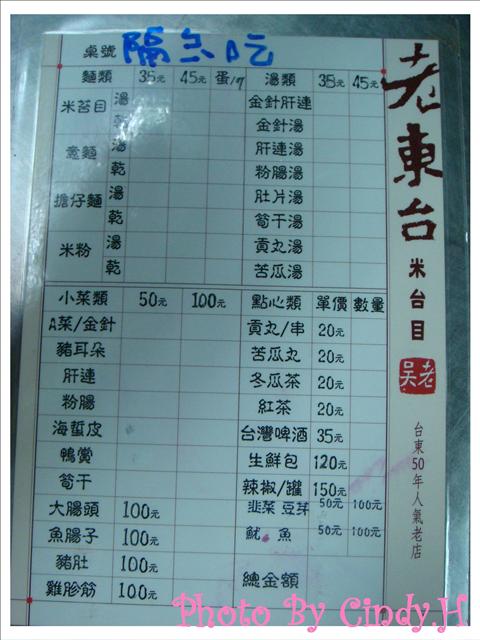 桌號 隔⺣吃
麵類 35元 45元 蛋/7 湯類 35元 45元
米苔目 湯 金針肝連
乾 金針湯
意麵 湯 肝連湯
乾 粉腸湯
擔仔麵 湯 肚片湯
乾 筍干湯
米粉 湯 貢丸湯
乾 苦瓜湯
小菜類 50元 100元 點心類 單價 數量
A菜/金針 貢丸/串 20元
豬耳朵 苦瓜丸 20元
肝連 冬瓜茶 20元
粉腸 紅茶 20元
海蜇皮 台灣啤酒 35元
鴨賞 生鮮包 120元
筍干 辣椒/罐 150元
大腸頭 100元 韭菜 豆芽 50元 100元
魚腸子 100元 魷 魚 50元 100元
豬肚 100元
雞胗筋 100元 總金額
老東台
米台目
老吳
台東50年人氣老店
Photo By Cindy.H